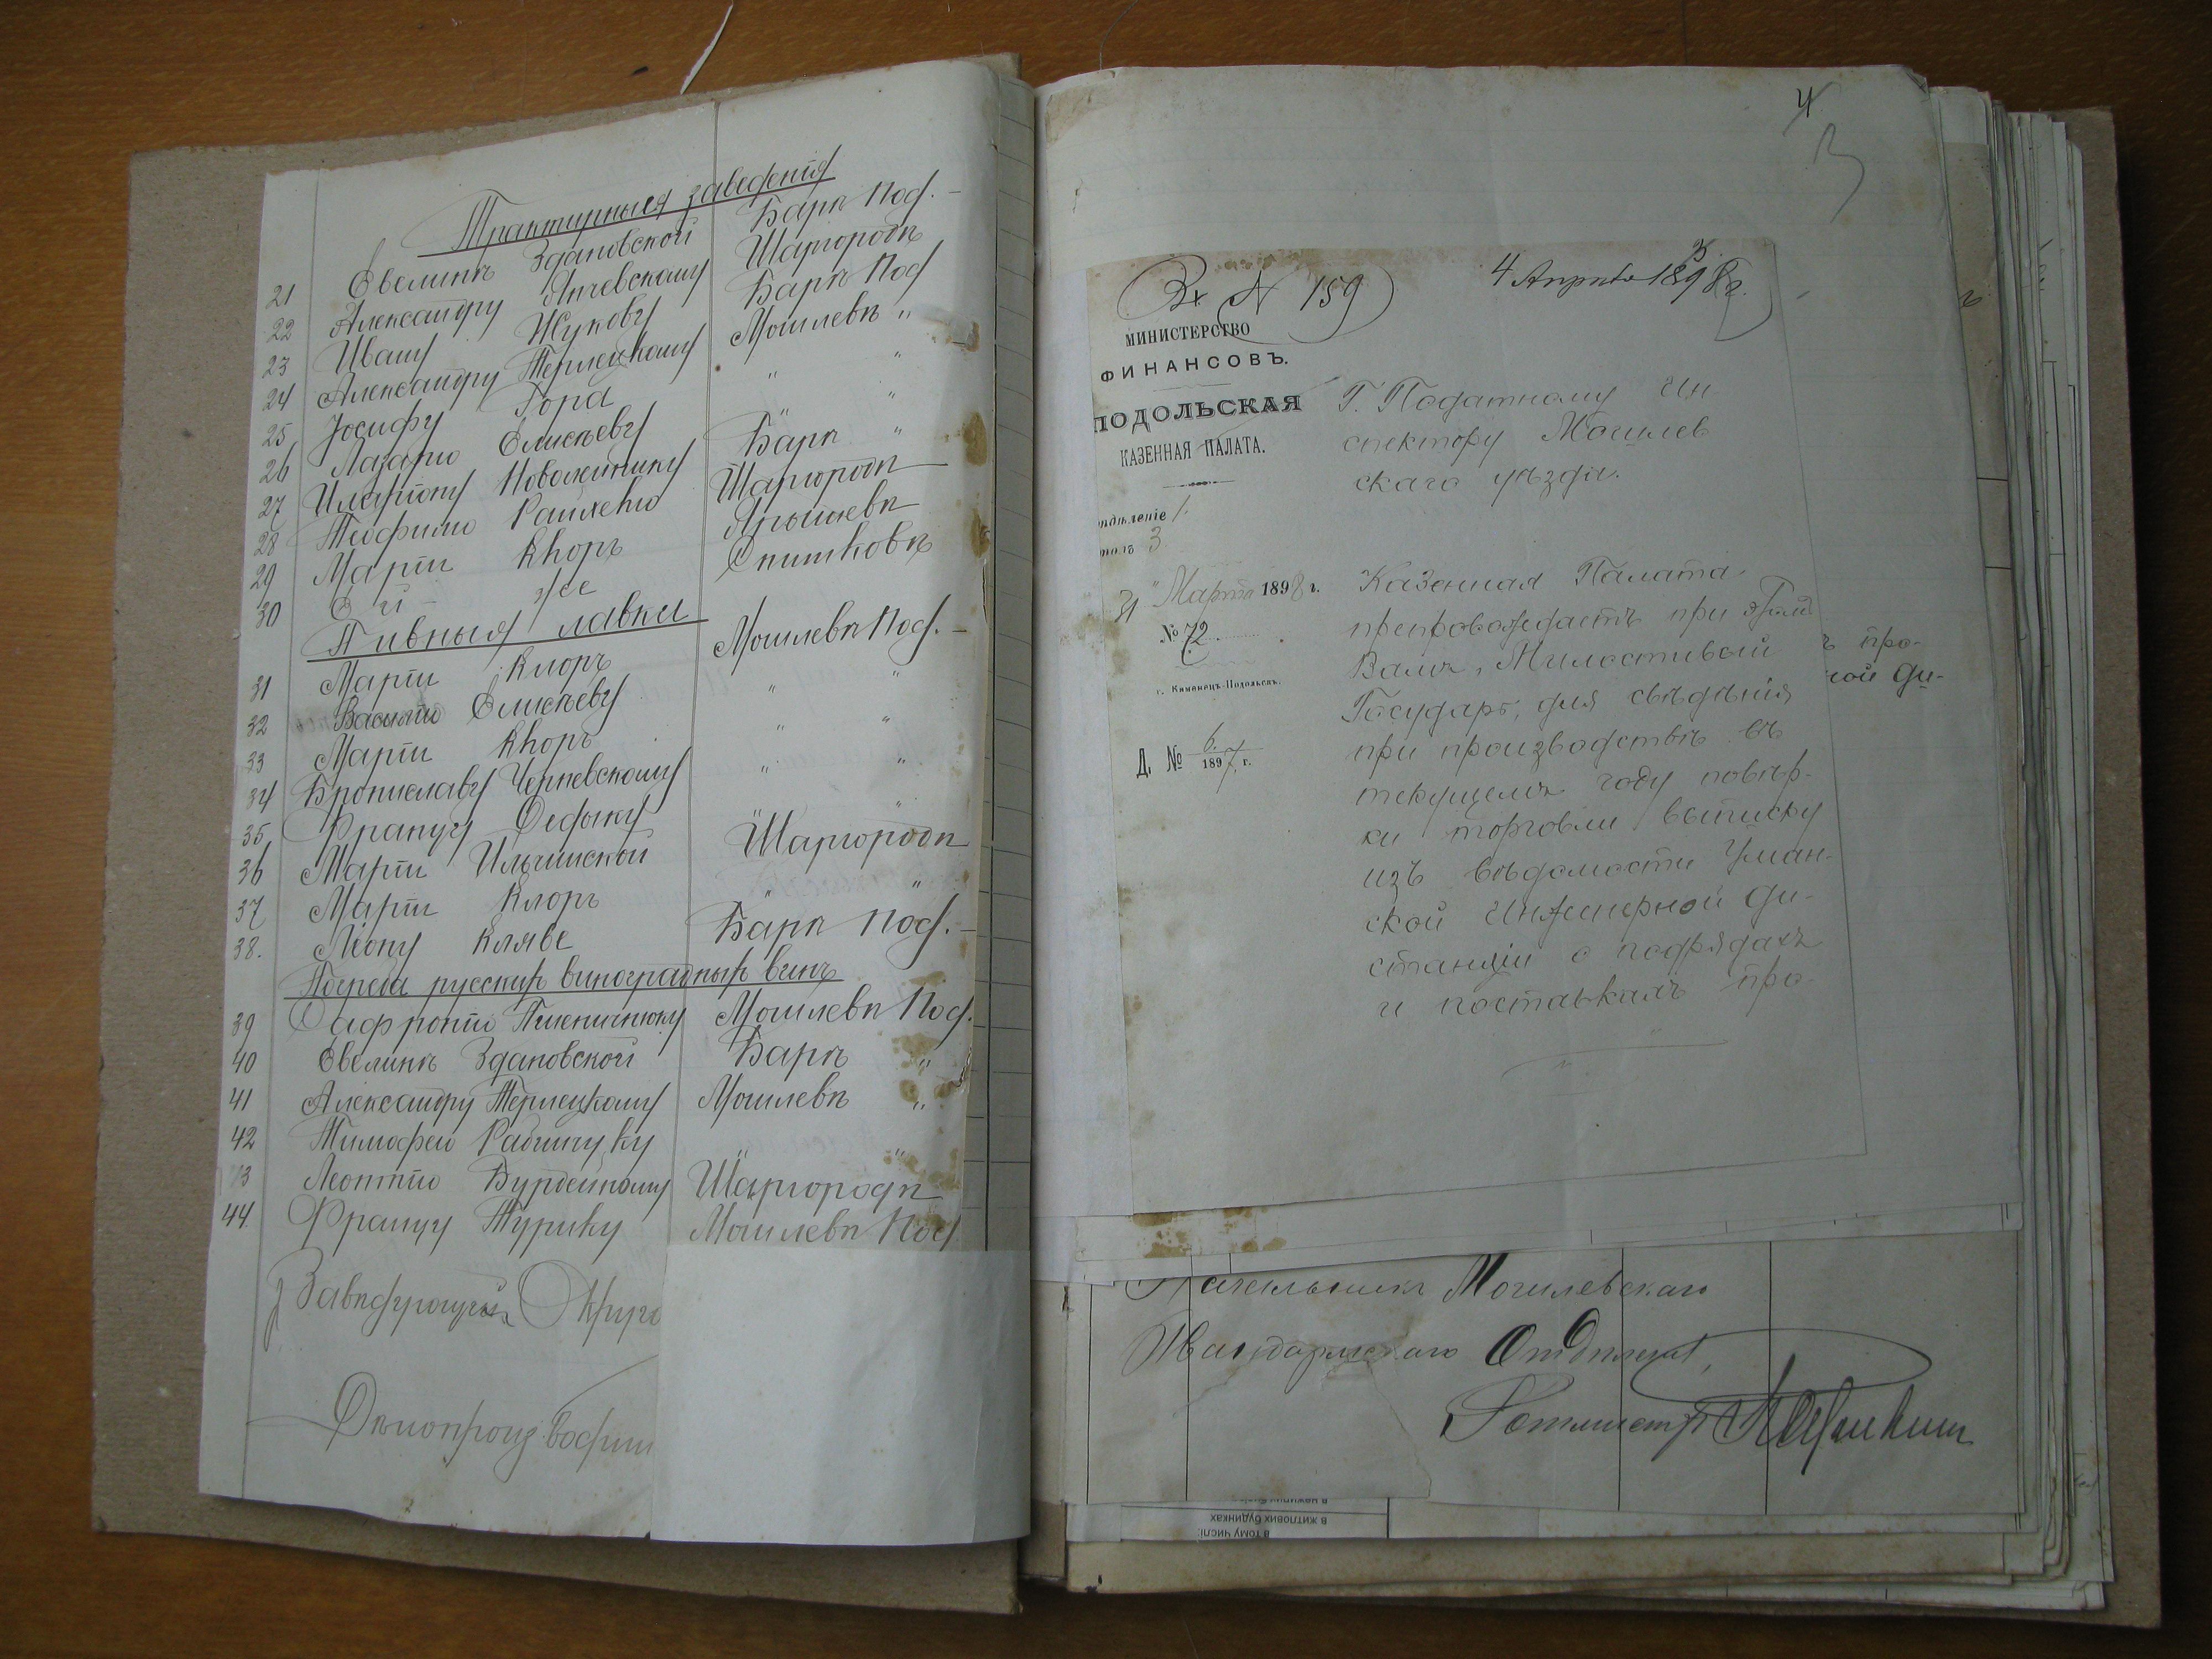 Трактирныя заведенія
21 Евелинѣ Здановской Барѣ Под.
22 Александру Янчевскому Шаргородѣ
23 Ивану Жукову Барѣ Под
24 Александру Терлецкому Могилевѣ "
25 Іосифу Гора " "
26 Лазарю Елисѣеву " "
27 Иларіону Новолейнику Барѣ "
28 Теофилю Шаргородѣ
29 Маріи Кноръ Ярышевѣ
30 Ей же Снитковѣ
Пивныя лавки
31 Маріи Кноръ Могилевѣ Под.
32 Василію Елисѣеву " "
33 Маріи Кноръ " "
34 Брониславу Черневскому " "
35 Францу Федыку " "
36 Маріи Ильчинской Шаргородѣ
37 Маріи Кноръ " "
38. Леону Кляве Барѣ Под.
Погреба русскихъ виноградныхъ винъ
39 Сафронію Пшеничнюку Могилевѣ Под.
40 Евелинѣ Здановской Барѣ "
41 Александру Терлецкому Могилевѣ "
42 Тимофею " "
43 Леонтію Бурдейному Шаргородѣ
44. Францу Турику Могилевѣ Под
Завѣдующій Округ
Дѣлопроизводи
4
3
Вх № 159
4 Апрѣля 1898 г.
МИНИСТЕРСТВО
ФИНАНСОВЪ.
ПОДОЛЬСКАЯ
КАЗЕННАЯ ПАЛАТА.
дѣленіе 1.
толъ 3
31 " Марта 1898 г.
№ 72
г. Каменецъ-Подольскъ.
Д. № 6. / 1897 г.
Г. Податному Ин
спектору Могилев
скаго уѣзда.
Казенная Палата
препровождаетъ при этомъ
Вамъ, Милостивый
Государь, для свѣдѣнія
при производствѣ въ
текущемъ году повѣр-
ки торговли выписку
изъ вѣдомости Уман-
ской Инженерной ди-
станціи о подрядахъ
и поставкахъ про-
ъ про-
ной ди-
Начальникъ Могилевскаго
Жандармскаго Отдѣленія,
Ротмистръ
в тому числі:
в житлових будинках